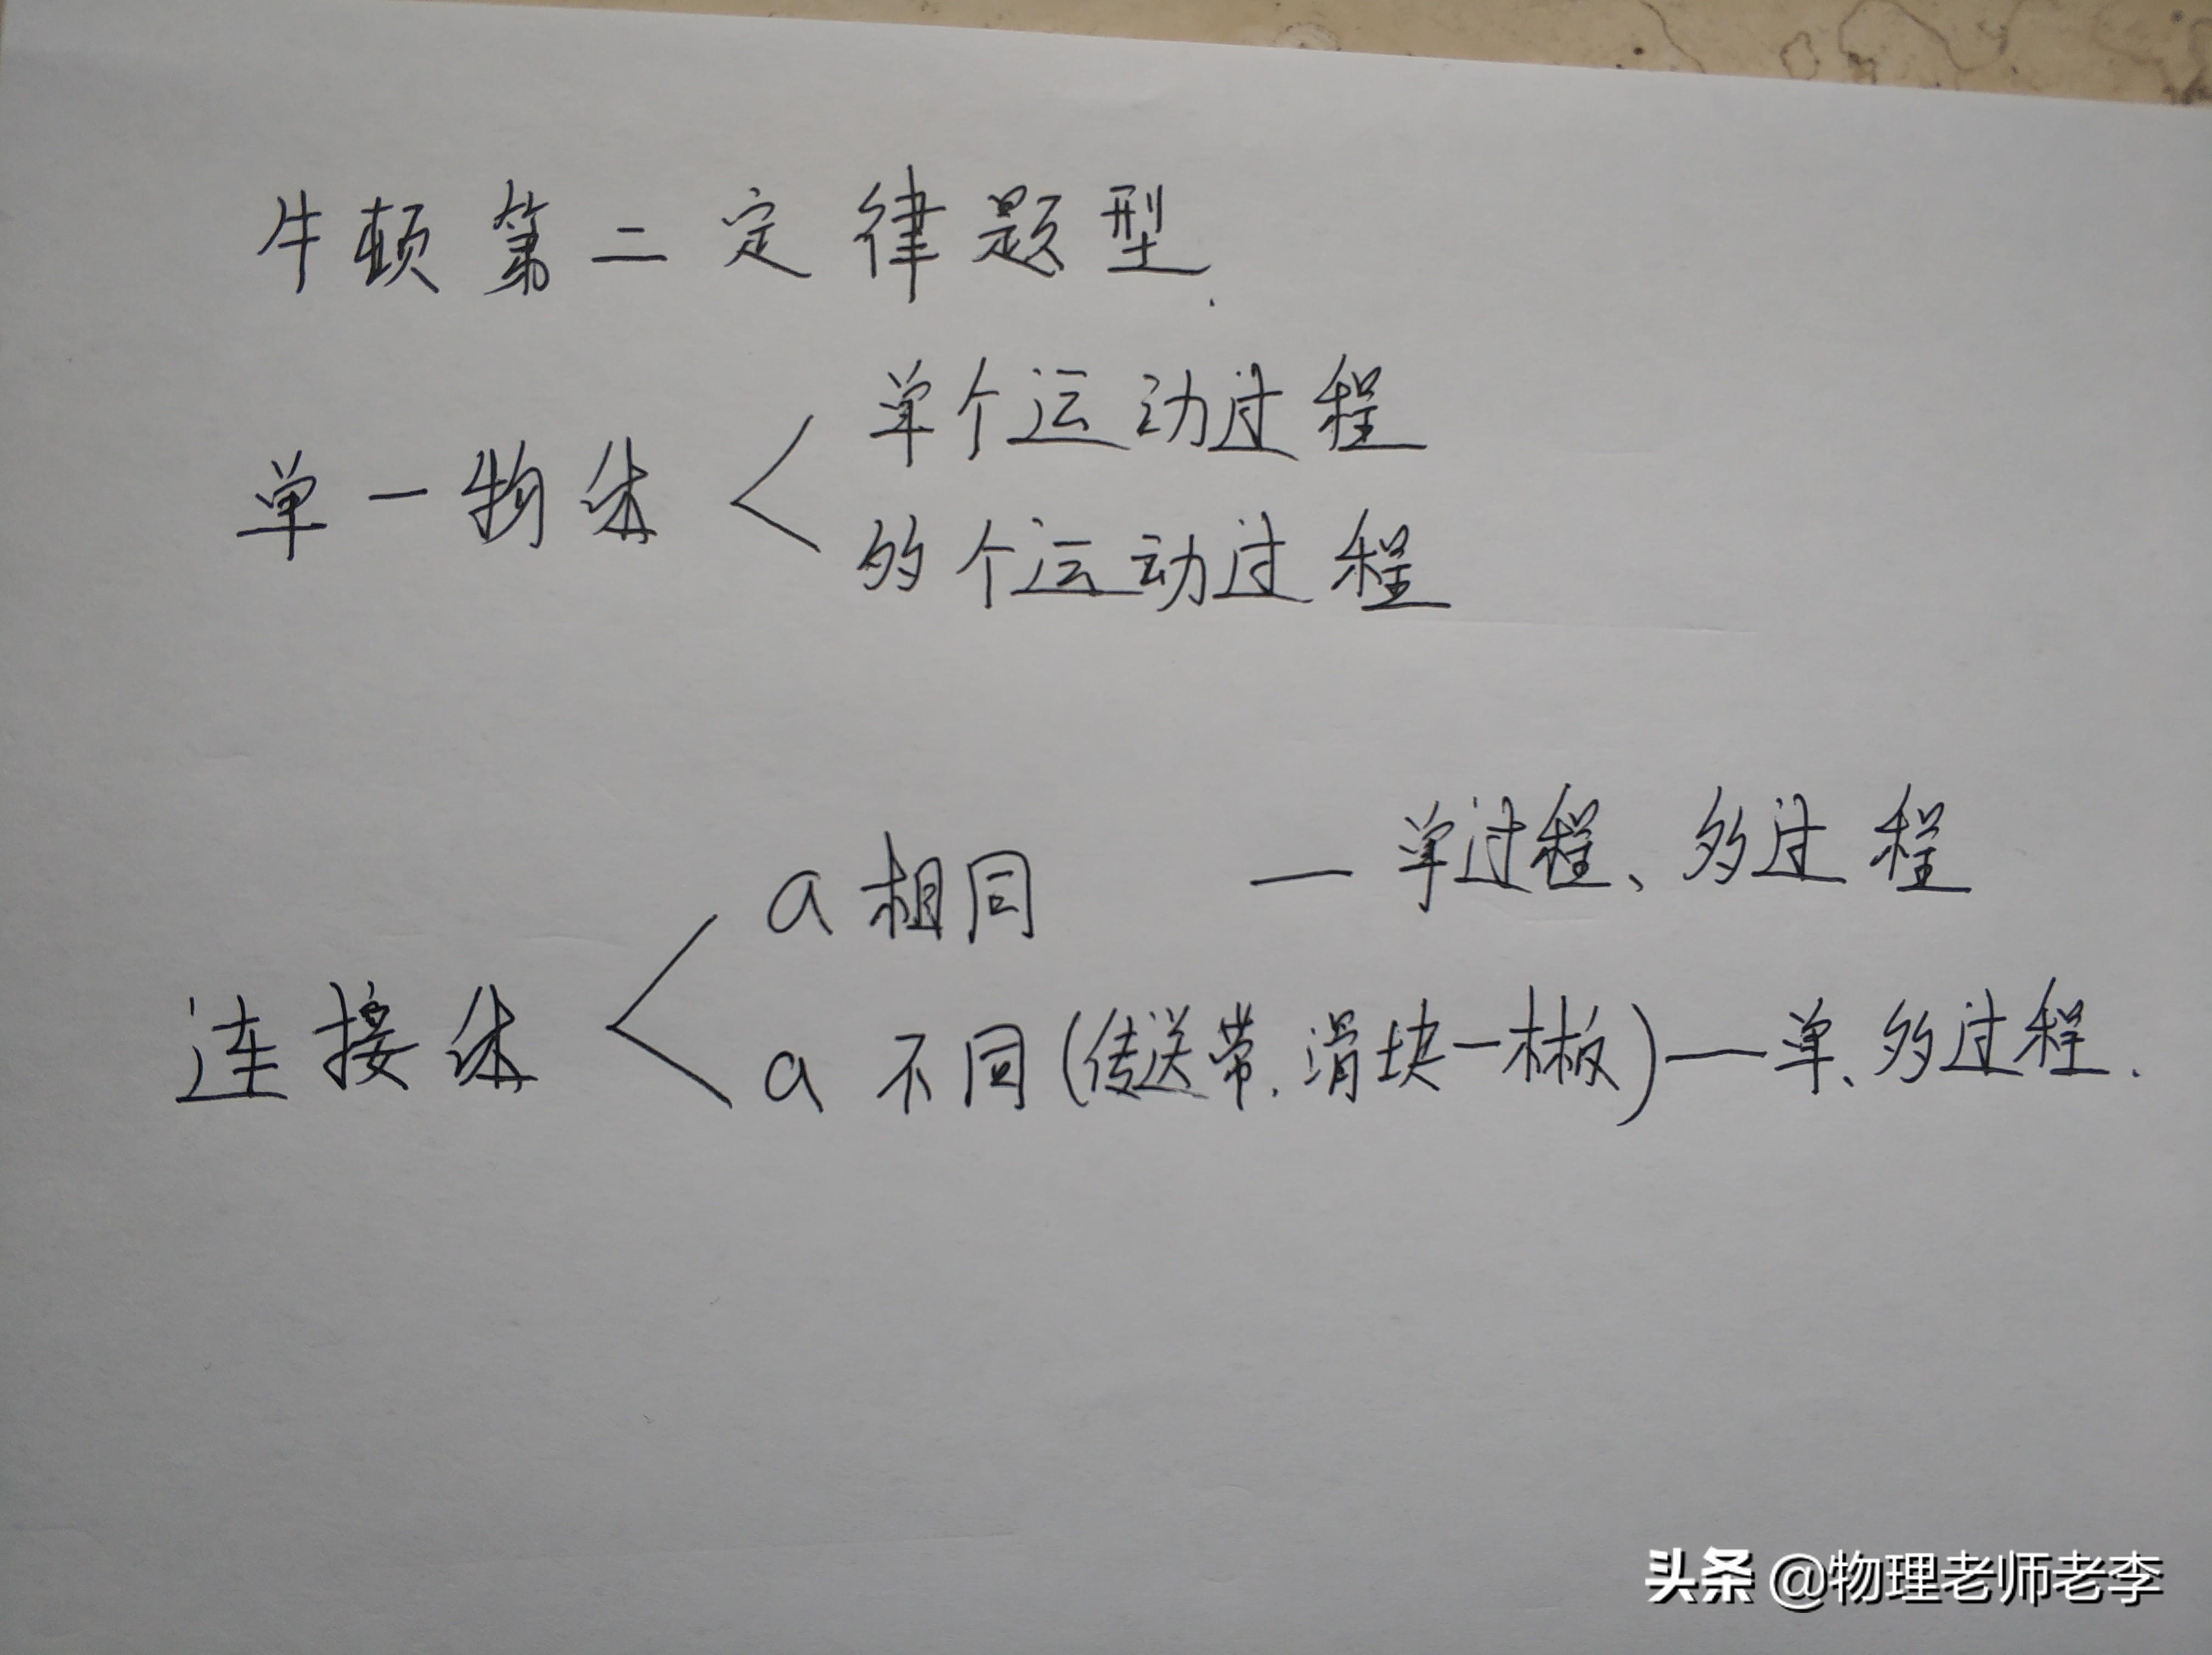 牛顿第二定律题型.
单个运动过程
单一物体
多个运动过程
a相同 — 单过程、多过程
连接体
a不同(传送带.滑块一木板)—单、多过程.
头条 @物理老师老李